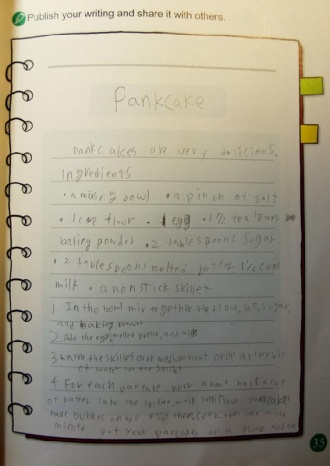 Publish your writing and share it with others.
Pankcake
Pankcakes are very
Ingredients
• a mixing bowl • a pinch of salt
• 1 cup flour • 1 egg • 1½ tea
baking powder • 2 tablespoons sugar
• 2 tablespoons melted 1¼ cups
milk • a nonstick skillet
1 In the bowl mix together the flour, salt, sugar,
and baking powder
2 Add the egg, melted butter, and milk
3 warm the skillet over medium heat Drop a tiny bit
4 For each pancake pour about half a cup
of batter into the skillet until pancakes
have bubbles on top Flip them, cook for one
minute put your pancakes on a
35